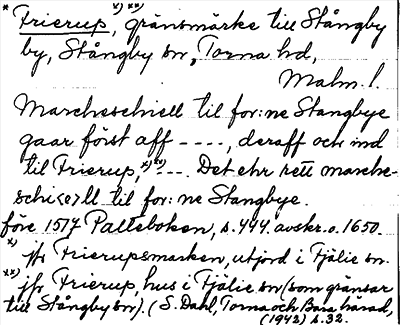 * Frierup, x) xx) gränsmärke till Stångby
by, Stångby sn, Torna hd,
Malm. l.
Marcheschiell til for:ne Stangbye
gaar först aff ----, deraff och ind
til Frierup, x) xx) --- Det ehr rett marche-
schi<e>ll til for:ne Stangbye.
före 1517 Palteboken, s. 444. avskr. o. 1650.
x) jfr Frierupsmarken, utjord i Fjälie sn.
xx) jfr Frierup, hus i Fjälie sn (som gränsar
till Stångby sn). (S. Dahl, Torna och Bara härad,
(1942) s. 32.